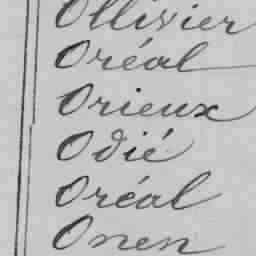 Ollivier
Oréal
Orieux
Odié
Oréal
Onen